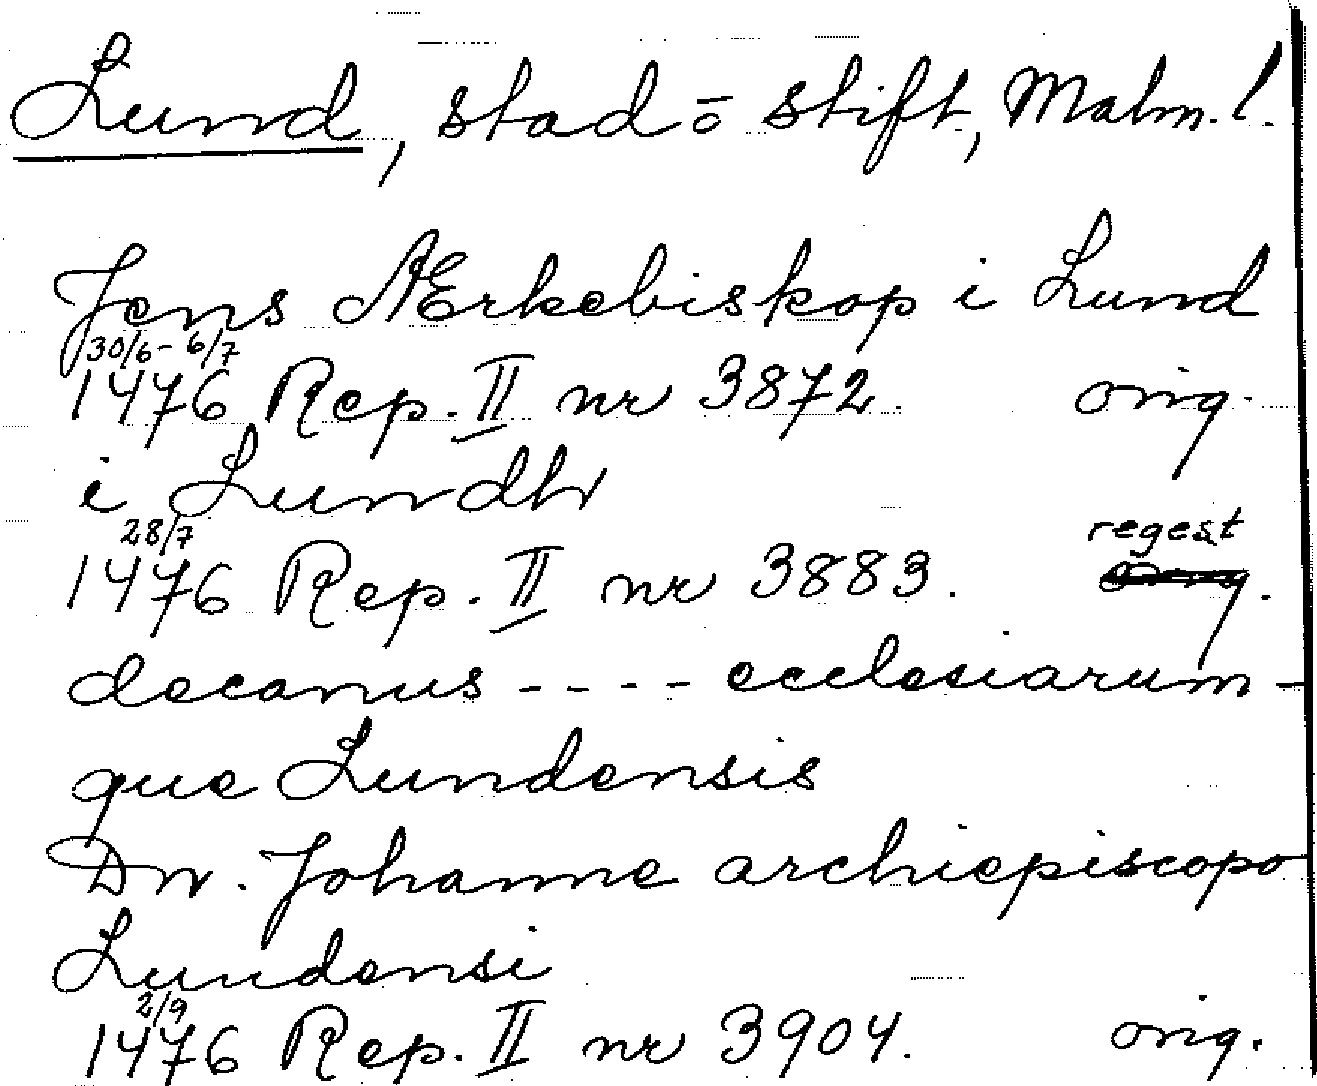 Lund, stad o stift, Malm. l.
Jens AErkebiskop i Lund
30/6 - 6/7
1476 Rep. II nr 3872. orig.
i Lundh
28/7 regest
1476 Rep. II nr 3883.
decanus - - - - ecclesiarum-
que Lundensis
Dn. Johanne archiepiscopo
Lundensi
2/9
1476 Rep. II nr 3904. orig.